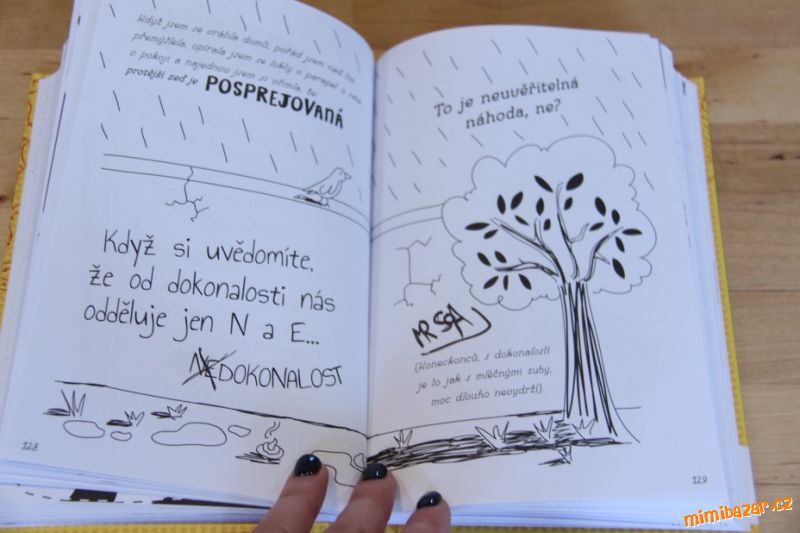 Když jsem se vrátila domů, pořád jsem nad tím
přemýšlela, opírala jsem se lokty o parapet u sebe
v pokoji a najednou jsem si všimla, že
protější zeď je POSPREJOVANÁ
Když si uvědomíte,
že od dokonalosti nás
odděluje jen N a E...
NEDOKONALOST
128
To je neuvěřitelná
náhoda, ne?
MR SGA
(Koneckonců, s dokonalostí
je to jak s mléčnými zuby,
moc dlouho nevydrží).
129
mimibazar.cz